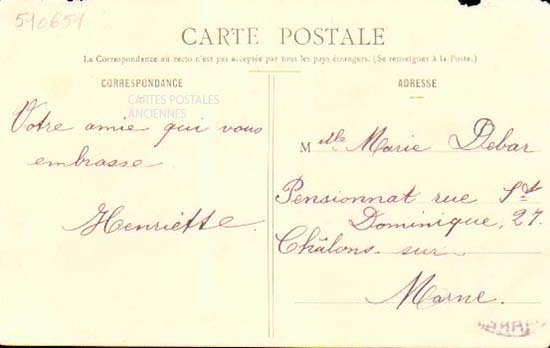 510651
CARTE POSTALE
La Correspondance au recto n'est pas acceptée par tous les pays étrangers. (Se renseigner à la Poste.)
CORRESPONDANCE
CARTES POSTALES
ANCIENNES
Votre amie qui vous
embrasse
Henriette.
ADRESSE
Mlle Marie Debar
Pensionnat rue St
Dominique, 27.
Châlons-sur-
Marne.